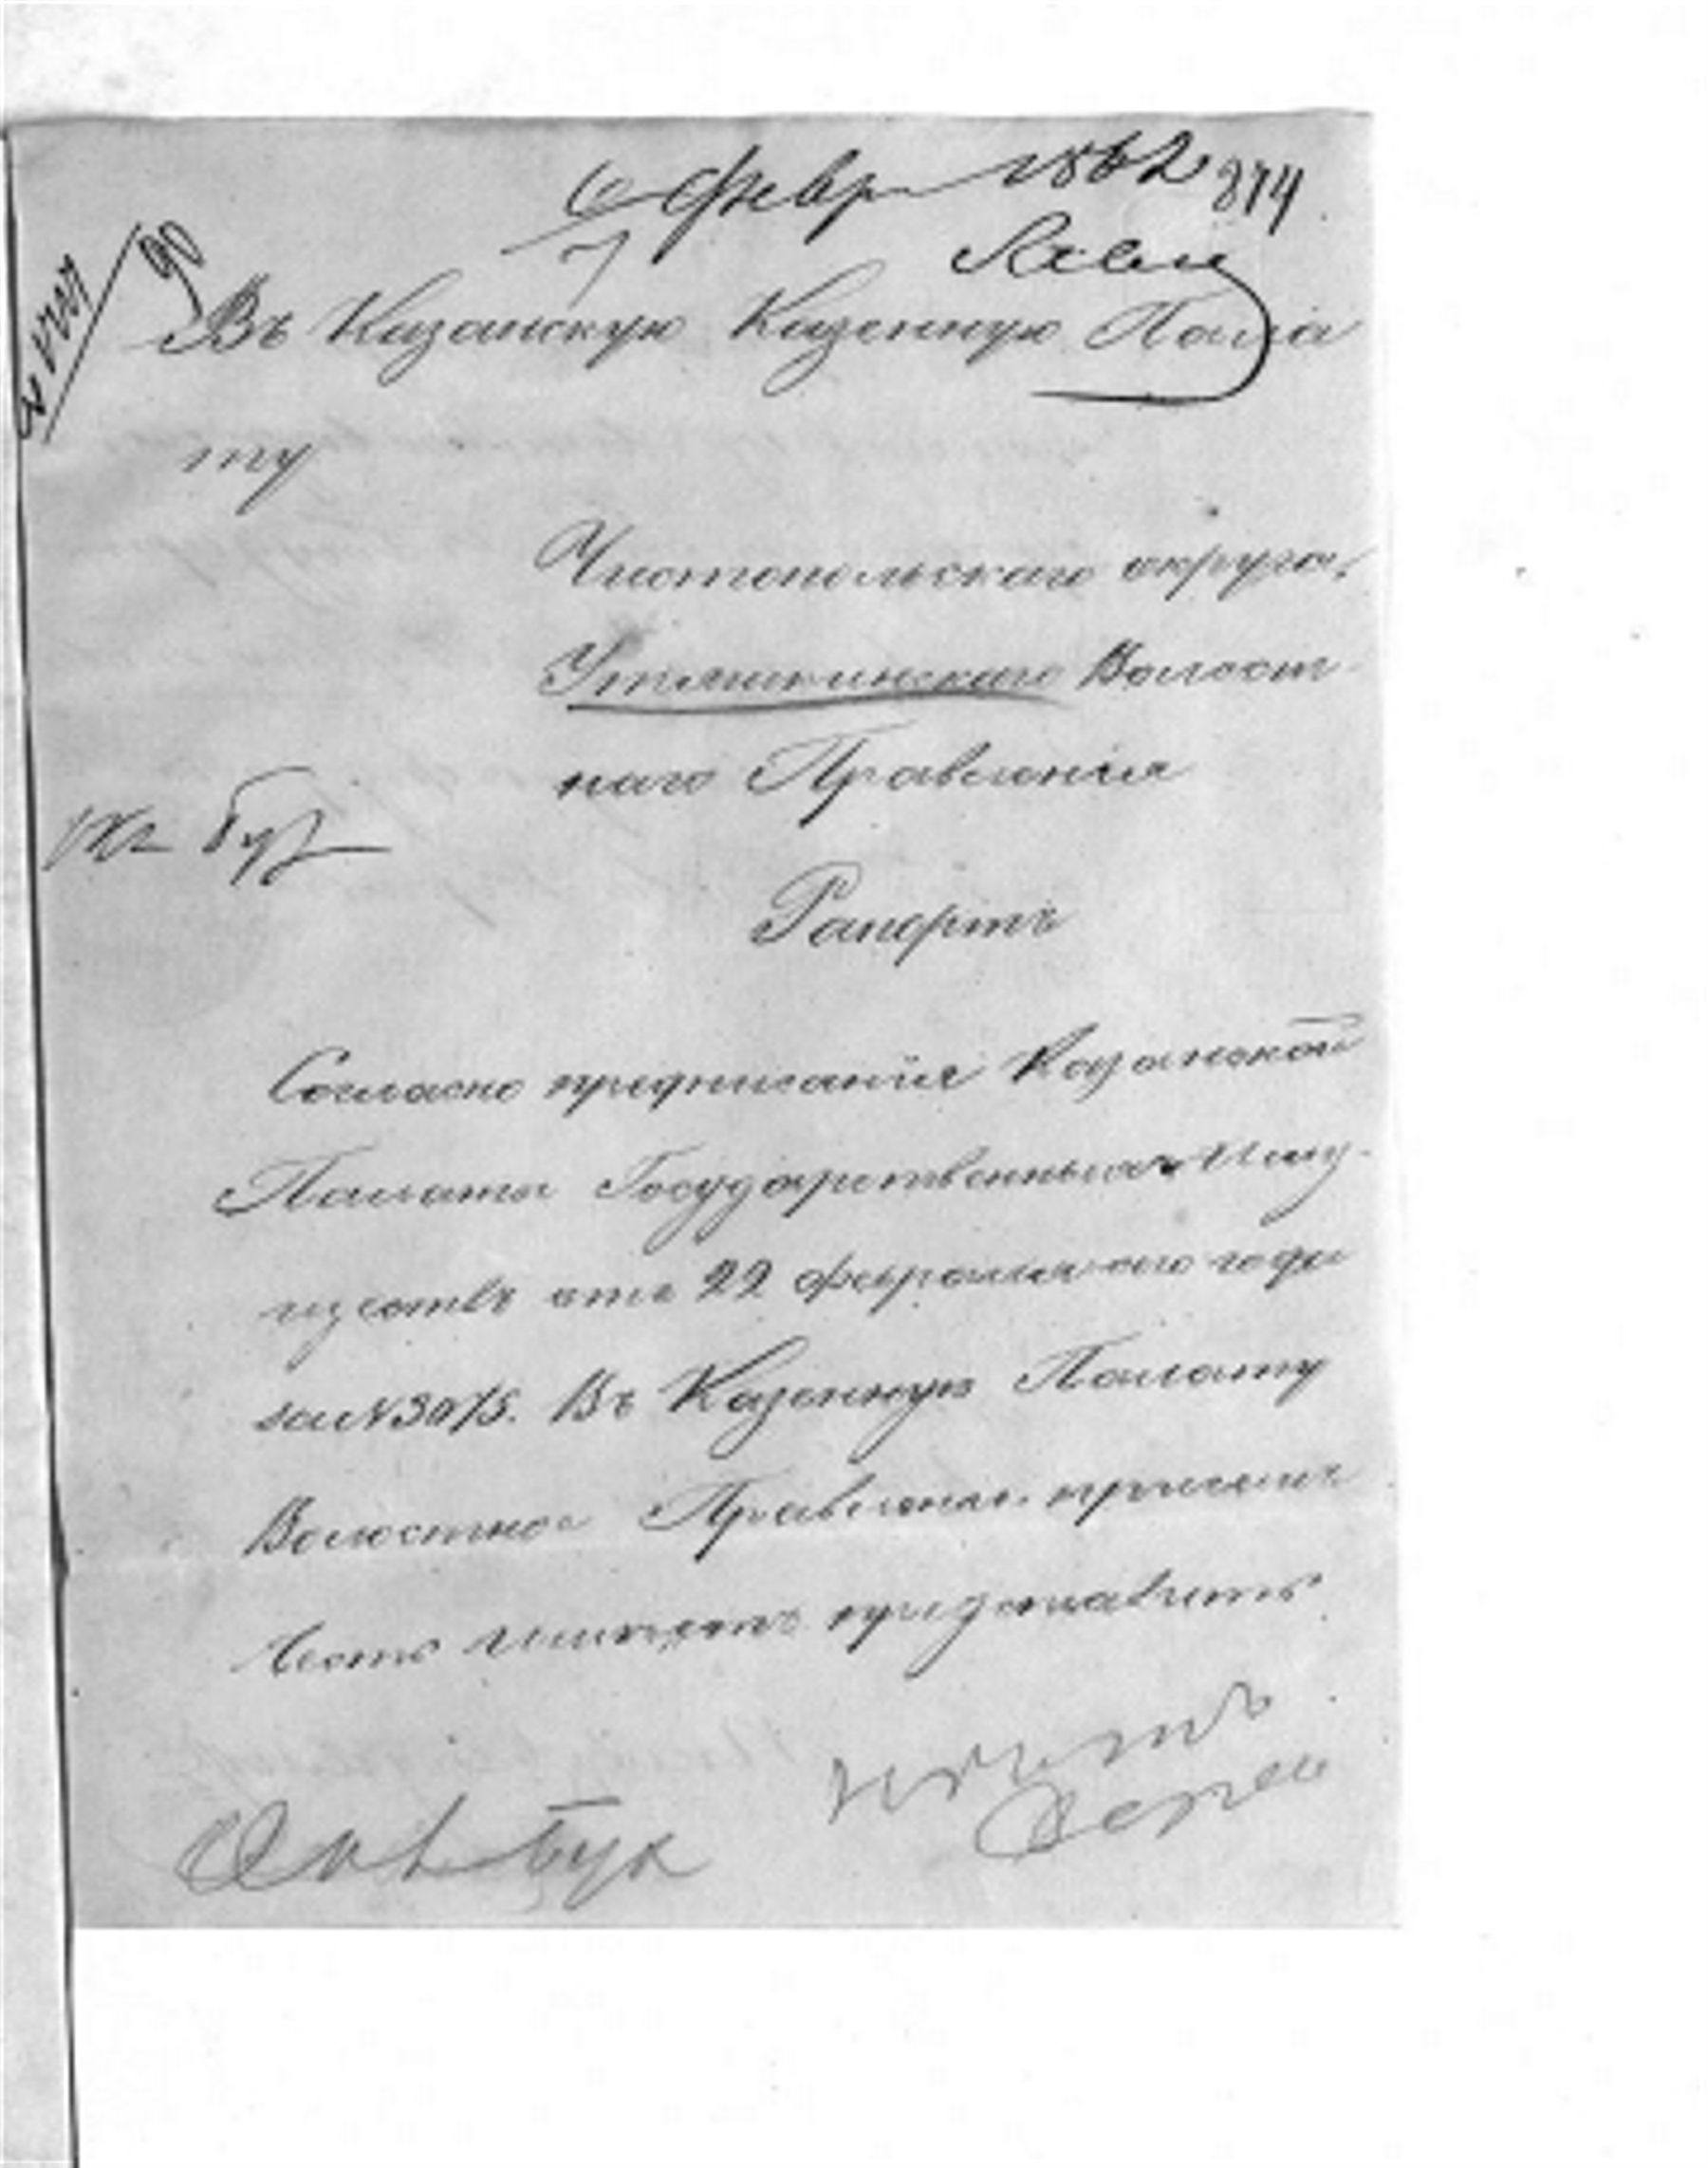 6 Февр 1862 874
Въ Казанскую Казенную Пала
ту
Чистопольскаго округа,
Утяшкинскаго Волост
наго Правленія
Рапортъ
Согласно предписанія Казанской
Палаты Государственныхъ Иму-
ществъ отъ 22 февраля сего года
за № 3075. Въ Казенную Палату
Волостное Правленіе при семъ
честь имѣетъ представить